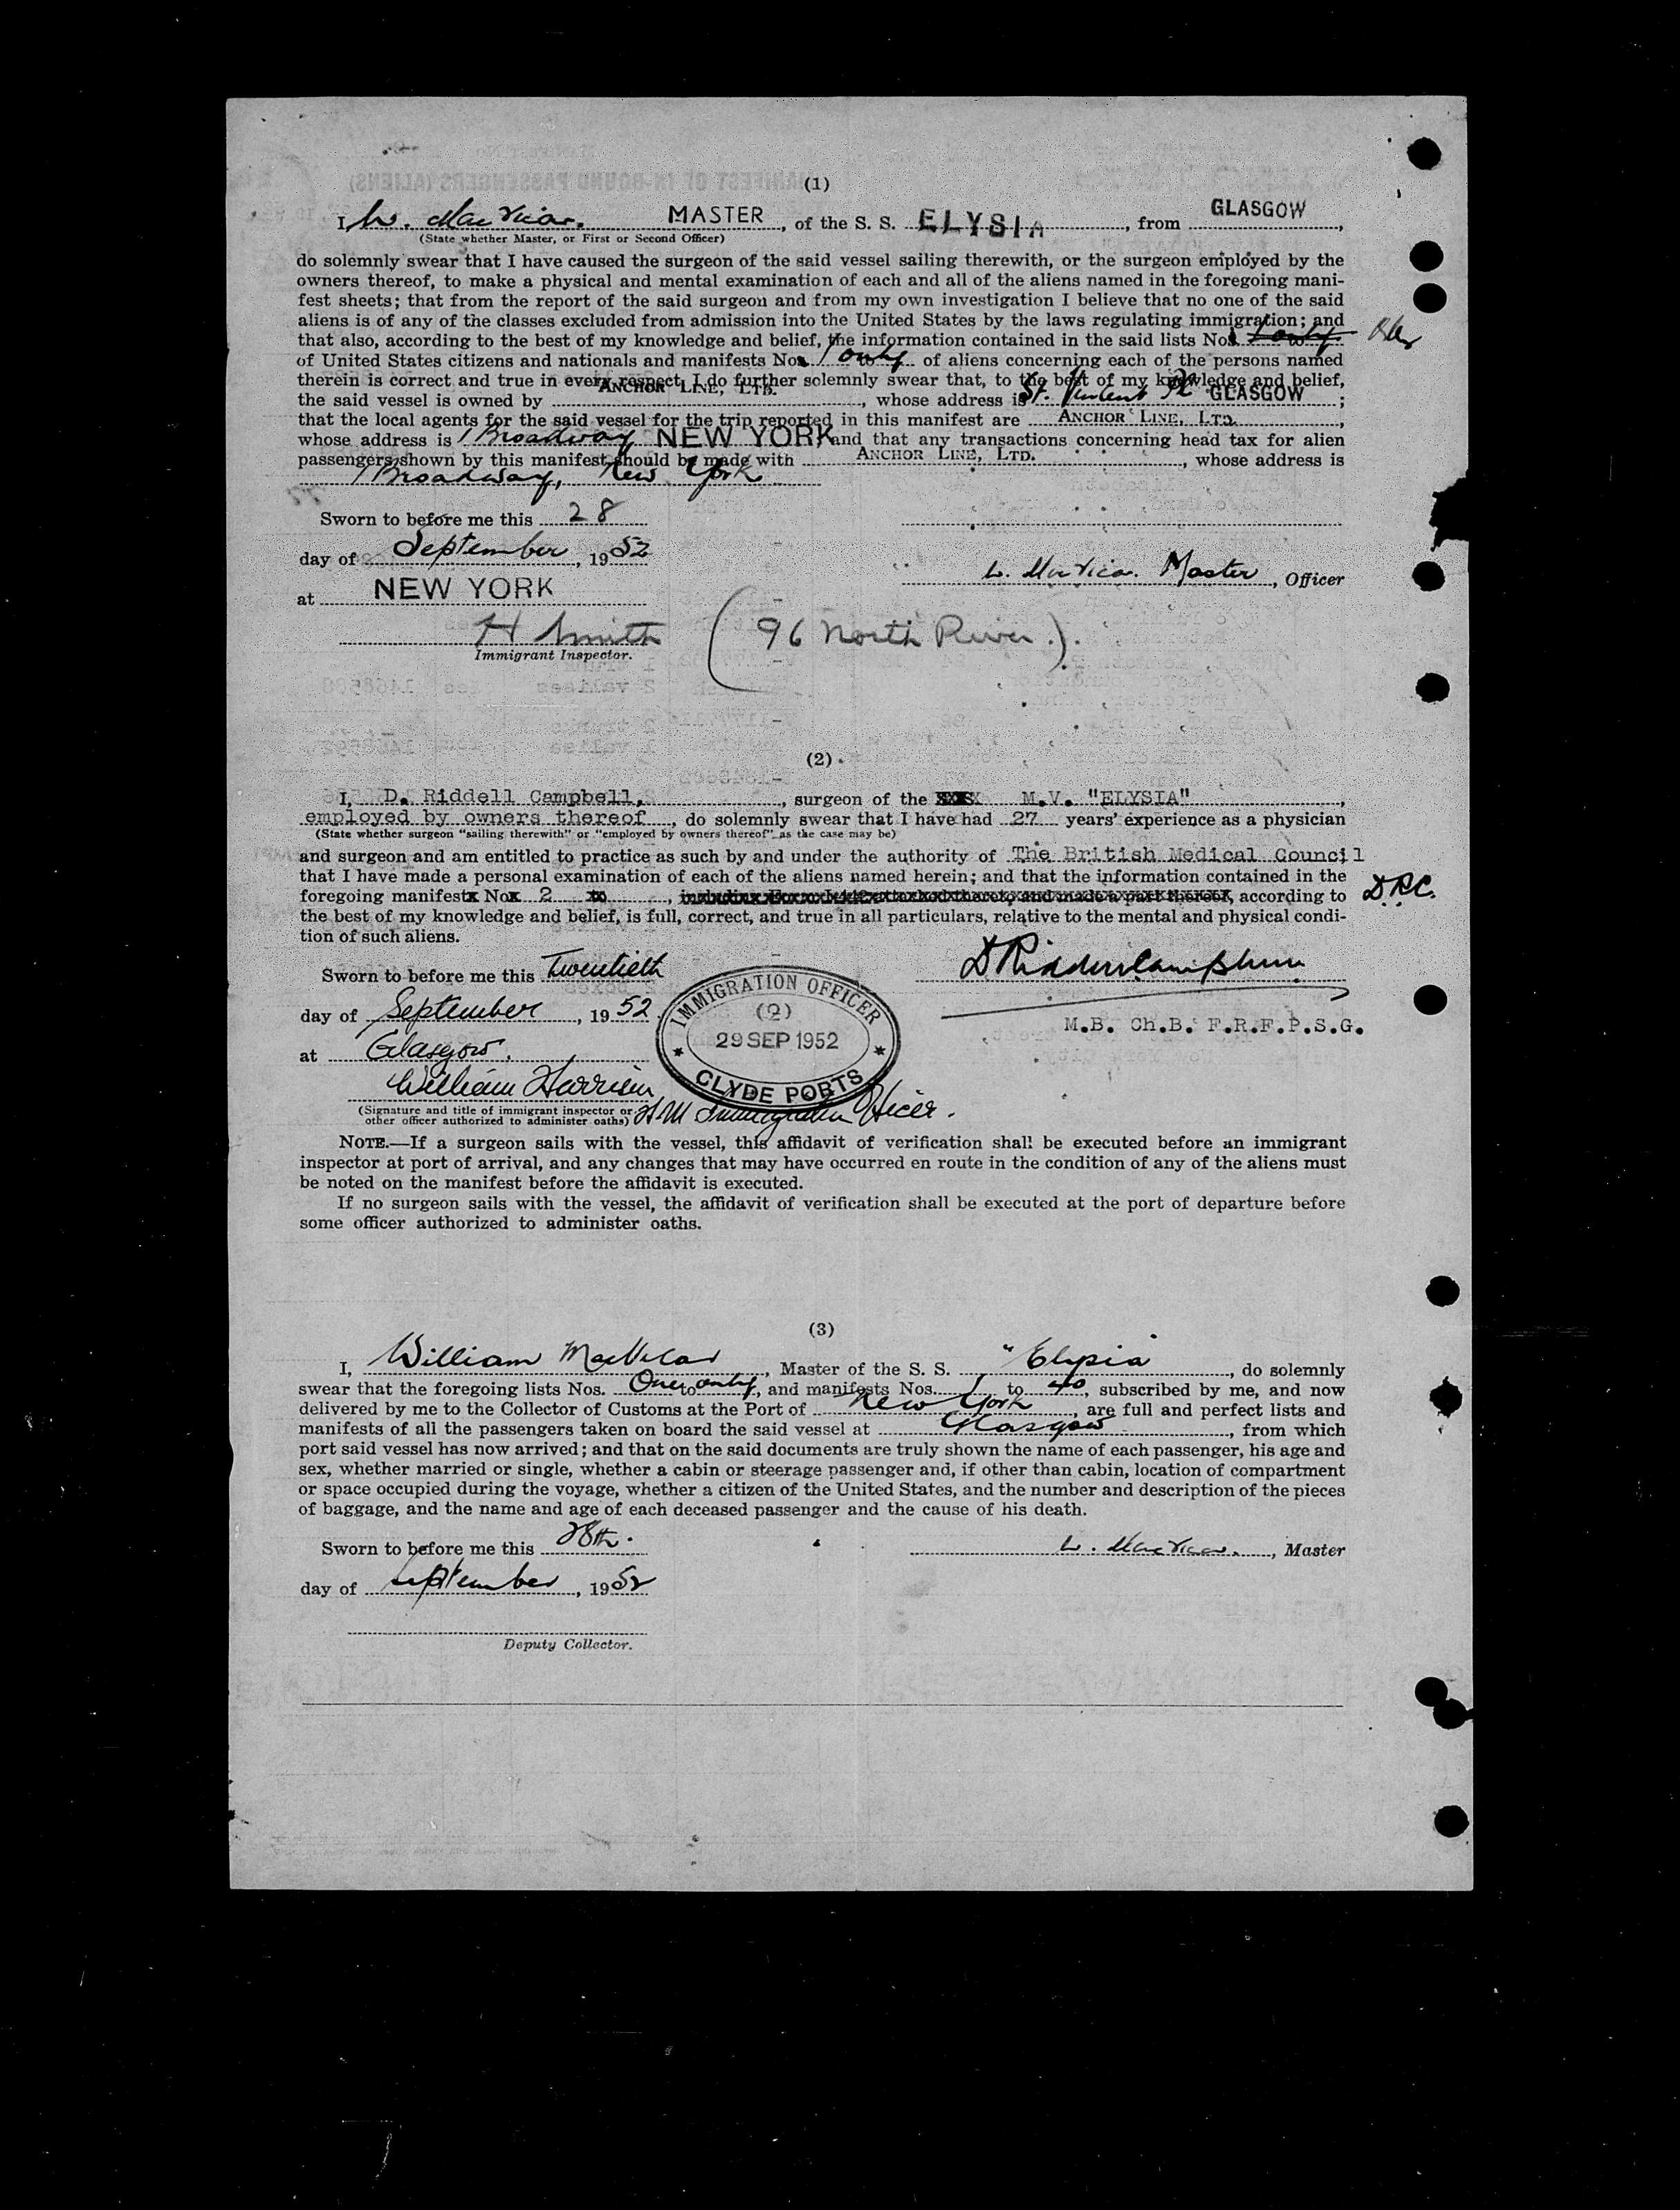 (1)
I, W. MacVicar. MASTER, of the S. S. ELYSIA, from GLASGOW,
(State whether Master, or First or Second Officer)
do solemnly swear that I have caused the surgeon of the said vessel sailing therewith, or the surgeon employed by the
owners thereof, to make a physical and mental examination of each and all of the aliens named in the foregoing mani-
fest sheets; that from the report of the said surgeon and from my own investigation I believe that no one of the said
aliens is of any of the classes excluded from admission into the United States by the laws regulating immigration; and
that also, according to the best of my knowledge and belief, the information contained in the said lists Nos. 1 only
of United States citizens and nationals and manifests Nos. 1 only of aliens concerning each of the persons named
therein is correct and true in every respect. I do further solemnly swear that, to the best of my knowledge and belief,
the said vessel is owned by ANCHOR LINE, LTD., whose address is St. Vincent Pl GLASGOW;
that the local agents for the said vessel for the trip reported in this manifest are ANCHOR LINE, LTD.,
whose address is 1 Broadway NEW YORK and that any transactions concerning head tax for alien
passengers shown by this manifest should be made with ANCHOR LINE, LTD., whose address is
1 Broadway, New York
Sworn to before me this 28
day of September, 1952
W. MacVicar. Master, Officer
at NEW YORK
H Smith (96 North River.).
Immigrant Inspector.
(2)
I, D. Riddell Campbell, surgeon of the XXX M.V. "ELYSIA",
employed by owners thereof, do solemnly swear that I have had 27 years' experience as a physician
(State whether surgeon "sailing therewith" or "employed by owners thereof" as the case may be)
and surgeon and am entitled to practice as such by and under the authority of The British Medical Council
that I have made a personal examination of each of the aliens named herein; and that the information contained in the
foregoing manifestx Nox 2 to, including Form I-442 attached thereto, and made a part thereof, according to D.R.C.
the best of my knowledge and belief, is full, correct, and true in all particulars, relative to the mental and physical condi-
tion of such aliens.
Sworn to before me this Twentieth
D Riddell Campbell
day of September, 1952
M.B. Ch.B. F.R.F.P.S.G.
at Glasgow.
IMMIGRATION OFFICER
(2)
29 SEP 1952
CLYDE PORTS
William Harrison
(Signature and title of immigrant inspector or
other officer authorized to administer oaths) H M Immigration Officer.
NOTE.—If a surgeon sails with the vessel, this affidavit of verification shall be executed before an immigrant
inspector at port of arrival, and any changes that may have occurred en route in the condition of any of the aliens must
be noted on the manifest before the affidavit is executed.
If no surgeon sails with the vessel, the affidavit of verification shall be executed at the port of departure before
some officer authorized to administer oaths.
(3)
I, William MacVicar, Master of the S. S. "Elysia", do solemnly
swear that the foregoing lists Nos. One to only, and manifests Nos. 1 to 40, subscribed by me, and now
delivered by me to the Collector of Customs at the Port of New York, are full and perfect lists and
manifests of all the passengers taken on board the said vessel at Glasgow, from which
port said vessel has now arrived; and that on the said documents are truly shown the name of each passenger, his age and
sex, whether married or single, whether a cabin or steerage passenger and, if other than cabin, location of compartment
or space occupied during the voyage, whether a citizen of the United States, and the number and description of the pieces
of baggage, and the name and age of each deceased passenger and the cause of his death.
Sworn to before me this 28th.
W. MacVicar., Master
day of September, 1952
Deputy Collector.